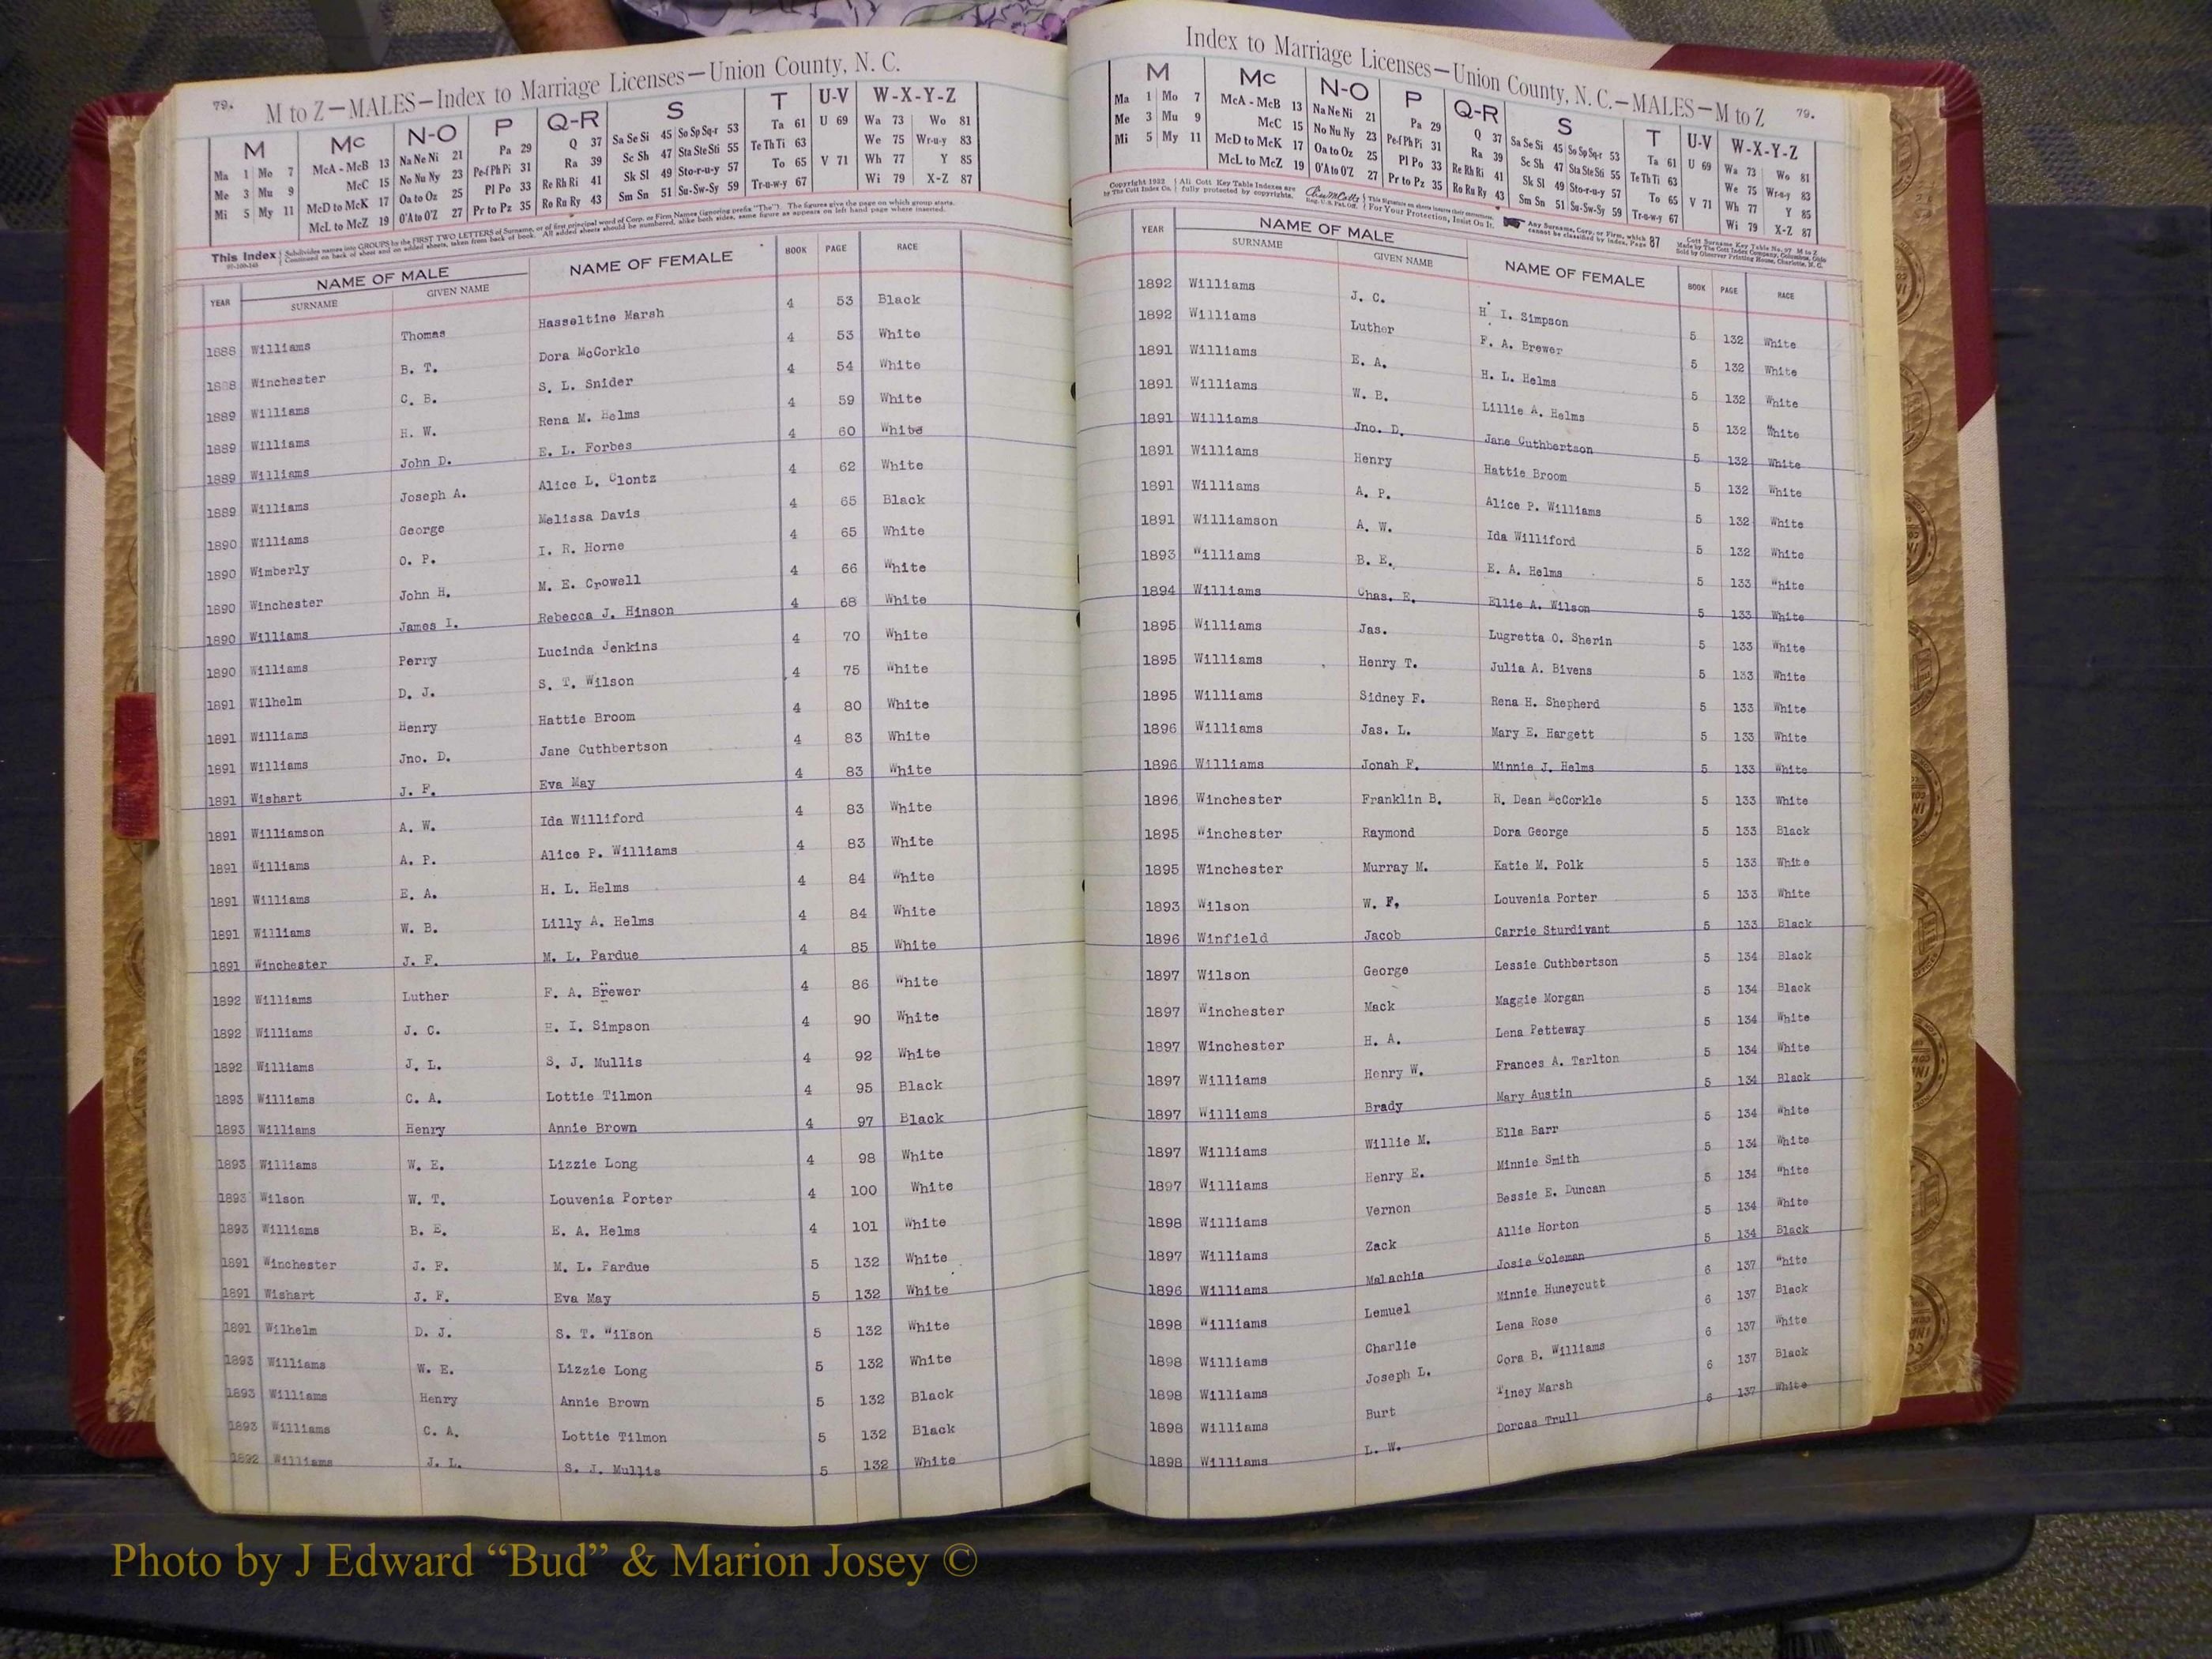 79.
M to Z—MALES—Index to Marriage Licenses—Union County, N. C.
M Mc N-O P Q-R S T U-V W-X-Y-Z
Ma 1 Mo 7 McA - McB 13 Na Ne Ni 21 Pa 29 Q 37 Sa Se Si 45 So Sp Sq-r 53 Ta 61 U 69 Wa 73 Wo 81
Me 3 Mu 9 McC 15 No Nu Ny 23 Pe-f Ph Pi 31 Ra 39 Sc Sh 47 Sta Ste Sti 55 Te Th Ti 63 We 75 Wr-u-y 83
Mi 5 My 11 McD to McK 17 Oa to Oz 25 Pl Po 33 Re Rh Ri 41 Sk Sl 49 Sto-r-u-y 57 To 65 V 71 Wh 77 Y 85
McL to McZ 19 O'A to O'Z 27 Pr to Pz 35 Ro Ru Ry 43 Sm Sn 51 Su-Sw-Sy 59 Tr-u-w-y 67 Wi 79 X-Z 87
This Index Subdivides names into GROUPS by the FIRST TWO LETTERS of Surname, or of first principal word of Corp. or Firm Names (ignoring prefix "The"). The figures give the page on which group starts.
Continued on back of sheet and on added sheets, taken from back of book. All added sheets should be numbered, alike both sides, same figure as appears on left hand page where inserted.
YEAR NAME OF MALE NAME OF FEMALE BOOK PAGE RACE
SURNAME GIVEN NAME
1888 Williams Thomas Hasseltine Marsh 4 53 Black
1888 Winchester B. T. Dora McCorkle 4 53 White
1889 Williams C. B. S. L. Snider 4 54 White
1889 Williams H. W. Rena M. Helms 4 59 White
1889 Williams John D. E. L. Forbes 4 60 White
1889 Williams Joseph A. Alice L. Clontz 4 62 White
1890 Williams George Melissa Davis 4 65 Black
1890 Wimberly O. P. I. R. Horne 4 65 White
1890 Winchester John H. M. E. Crowell 4 66 White
1890 Williams James I. Rebecca J. Hinson 4 68 White
1890 Williams Perry Lucinda Jenkins 4 70 White
1891 Wilhelm D. J. S. T. Wilson 4 75 White
1891 Williams Henry Hattie Broom 4 80 White
1891 Williams Jno. D. Jane Cuthbertson 4 83 White
1891 Wishart J. F. Eva May 4 83 White
1891 Williamson A. W. Ida Williford 4 83 White
1891 Williams A. P. Alice P. Williams 4 83 White
1891 Williams E. A. H. L. Helms 4 84 White
1891 Williams W. B. Lilly A. Helms 4 84 White
1891 Winchester J. F. M. L. Pardue 4 85 White
1892 Williams Luther F. A. Brewer 4 86 White
1892 Williams J. C. H. I. Simpson 4 90 White
1892 Williams J. L. S. J. Mullis 4 92 White
1893 Williams C. A. Lottie Tilmon 4 95 Black
1893 Williams Henry Annie Brown 4 97 Black
1893 Williams W. E. Lizzie Long 4 98 White
1893 Wilson W. T. Louvenia Porter 4 100 White
1893 Williams B. E. E. A. Helms 4 101 White
1891 Winchester J. F. M. L. Pardue 5 132 White
1891 Wishart J. F. Eva May 5 132 White
1891 Wilhelm D. J. S. T. Wilson 5 132 White
1893 Williams W. E. Lizzie Long 5 132 White
1893 Williams Henry Annie Brown 5 132 Black
1893 Williams C. A. Lottie Tilmon 5 132 Black
1892 Williams J. L. S. J. Mullis 5 132 White
Index to Marriage Licenses—Union County, N. C.—MALES—M to Z 79.
M Mc N-O P Q-R S T U-V W-X-Y-Z
Ma 1 Mo 7 McA - McB 13 Na Ne Ni 21 Pa 29 Q 37 Sa Se Si 45 So Sp Sq-r 53 Ta 61 U 69 Wa 73 Wo 81
Me 3 Mu 9 McC 15 No Nu Ny 23 Pe-f Ph Pi 31 Ra 39 Sc Sh 47 Sta Ste Sti 55 Te Th Ti 63 We 75 Wr-u-y 83
Mi 5 My 11 McD to McK 17 Oa to Oz 25 Pl Po 33 Re Rh Ri 41 Sk Sl 49 Sto-r-u-y 57 To 65 V 71 Wh 77 Y 85
McL to McZ 19 O'A to O'Z 27 Pr to Pz 35 Ro Ru Ry 43 Sm Sn 51 Su-Sw-Sy 59 Tr-u-w-y 67 Wi 79 X-Z 87
Copyright 1932 All Cott Key Table Indexes are Any Surname, Corp. or Firm, which
by The Cott Index Co. fully protected by copyrights. Reg. U.S. Pat. Off. For Your Protection, Insist On It. cannot be classified by Index, Page 87
Cott Surname Key Table No. 97 M to Z
Made by The Cott Index Company, Columbus, Ohio
Sold by Observer Printing House, Charlotte, N. C.
YEAR NAME OF MALE NAME OF FEMALE BOOK PAGE RACE
SURNAME GIVEN NAME
1892 Williams J. C. H I. Simpson 5 132 White
1892 Williams Luther F. A. Brewer 5 132 White
1891 Williams E. A. H. L. Helms 5 132 White
1891 Williams W. B. Lillie A. Helms 5 132 White
1891 Williams Jno. D. Jane Cuthbertson 5 132 White
1891 Williams Henry Hattie Broom 5 132 White
1891 Williams A. P. Alice P. Williams 5 132 White
1891 Williamson A. W. Ida Williford 5 132 White
1893 Williams B. E. E. A. Helms 5 133 White
1894 Williams Chas. E. Ellie A. Wilson 5 133 White
1895 Williams Jas. Lugretta O. Sherin 5 133 White
1895 Williams Henry T. Julia A. Bivens 5 133 White
1895 Williams Sidney F. Rena H. Shepherd 5 133 White
1896 Williams Jas. L. Mary E. Hargett 5 133 White
1896 Williams Jonah F. Minnie J. Helms 5 133 White
1896 Winchester Franklin B. R. Dean McCorkle 5 133 White
1895 Winchester Raymond Dora George 5 133 Black
1895 Winchester Murray M. Katie M. Polk 5 133 White
1893 Wilson W. F. Louvenia Porter 5 133 White
1896 Winfield Jacob Carrie Sturdivant 5 133 Black
1897 Wilson George Lessie Cuthbertson 5 134 Black
1897 Winchester Mack Maggie Morgan 5 134 Black
1897 Winchester H. A. Lena Petteway 5 134 White
1897 Williams Henry W. Frances A. Tarlton 5 134 White
1897 Williams Brady Mary Austin 5 134 Black
1897 Williams Willie M. Ella Barr 5 134 White
1897 Williams Henry E. Minnie Smith 5 134 White
1898 Williams Vernon Bessie E. Duncan 5 134 White
1897 Williams Zack Allie Horton 5 134 White
1896 Williams Malachia Josie Coleman 5 134 Black
1898 Williams Lemuel Minnie Huneycutt 6 137 White
1898 Williams Charlie Lena Rose 6 137 Black
1898 Williams Joseph L. Cora B. Williams 6 137 White
1898 Williams Burt Tiney Marsh 6 137 Black
1898 Williams L. W. Dorcas Trull 6 137 White
Photo by J Edward “Bud” & Marion Josey ©